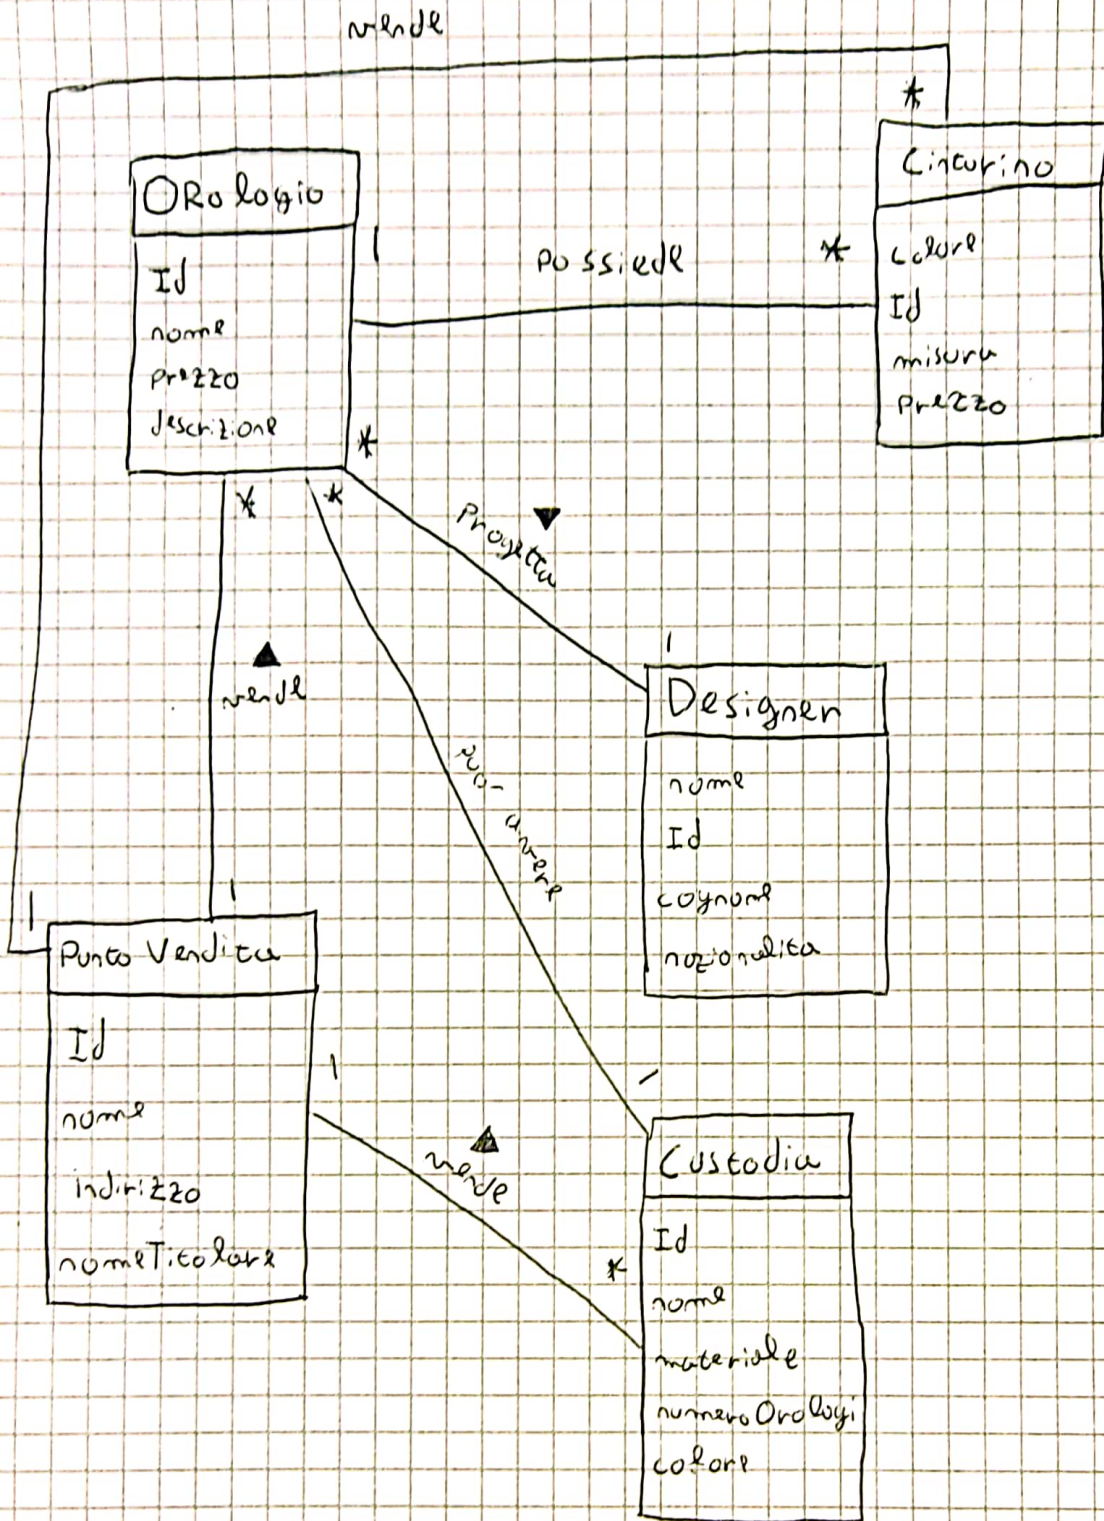 vende
*
Cinturino
colore
Id
misura
prezzo
ORologio
Id
nome
prezzo
descrizione
1
possiede
*
*
*
*
Progetta
1
Designer
nome
Id
cognome
nazionalita
vende
può avere
1
1
Punto Vendita
Id
nome
indirizzo
nomeTitolare
1
vende
*
1
Custodia
Id
nome
materiale
numeroOrologi
colore